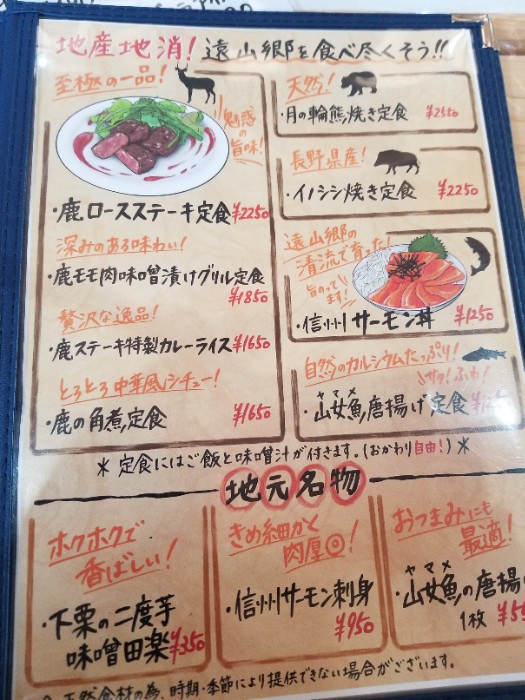 地産地消！遠山郷を食べ尽くそう!!
至極の一品！
魅惑の旨味！
・鹿ロースステーキ定食 ¥2250
深みのある味わい！
・鹿モモ肉味噌漬けグリル定食
¥1850
贅沢な逸品！
・鹿ステーキ特製カレーライス ¥1650
とろとろ中華風シチュー！
・鹿の角煮定食 ¥1650
天然！
・月の輪熊焼き定食 ¥2550
長野県産！
・イノシシ焼き定食 ¥2250
遠山郷の
清流で育った！
旨のってます！
・信州サーモン丼 ¥1250
自然のカルシウムたっぷり！
サクッふわ！
ヤマメ
・山女魚唐揚げ定食
＊定食にはご飯と味噌汁が付きます。(おかわり自由！)＊
地元名物
ホクホクで
香ばしい！
・下栗の二度芋
味噌田楽 ¥350
きめ細かく
肉厚◎！
・信州サーモン刺身
¥950
おつまみにも
最適！
ヤマメ
・山女魚の唐揚げ
1枚
天然食材の為、時期・季節により提供できない場合がございます。